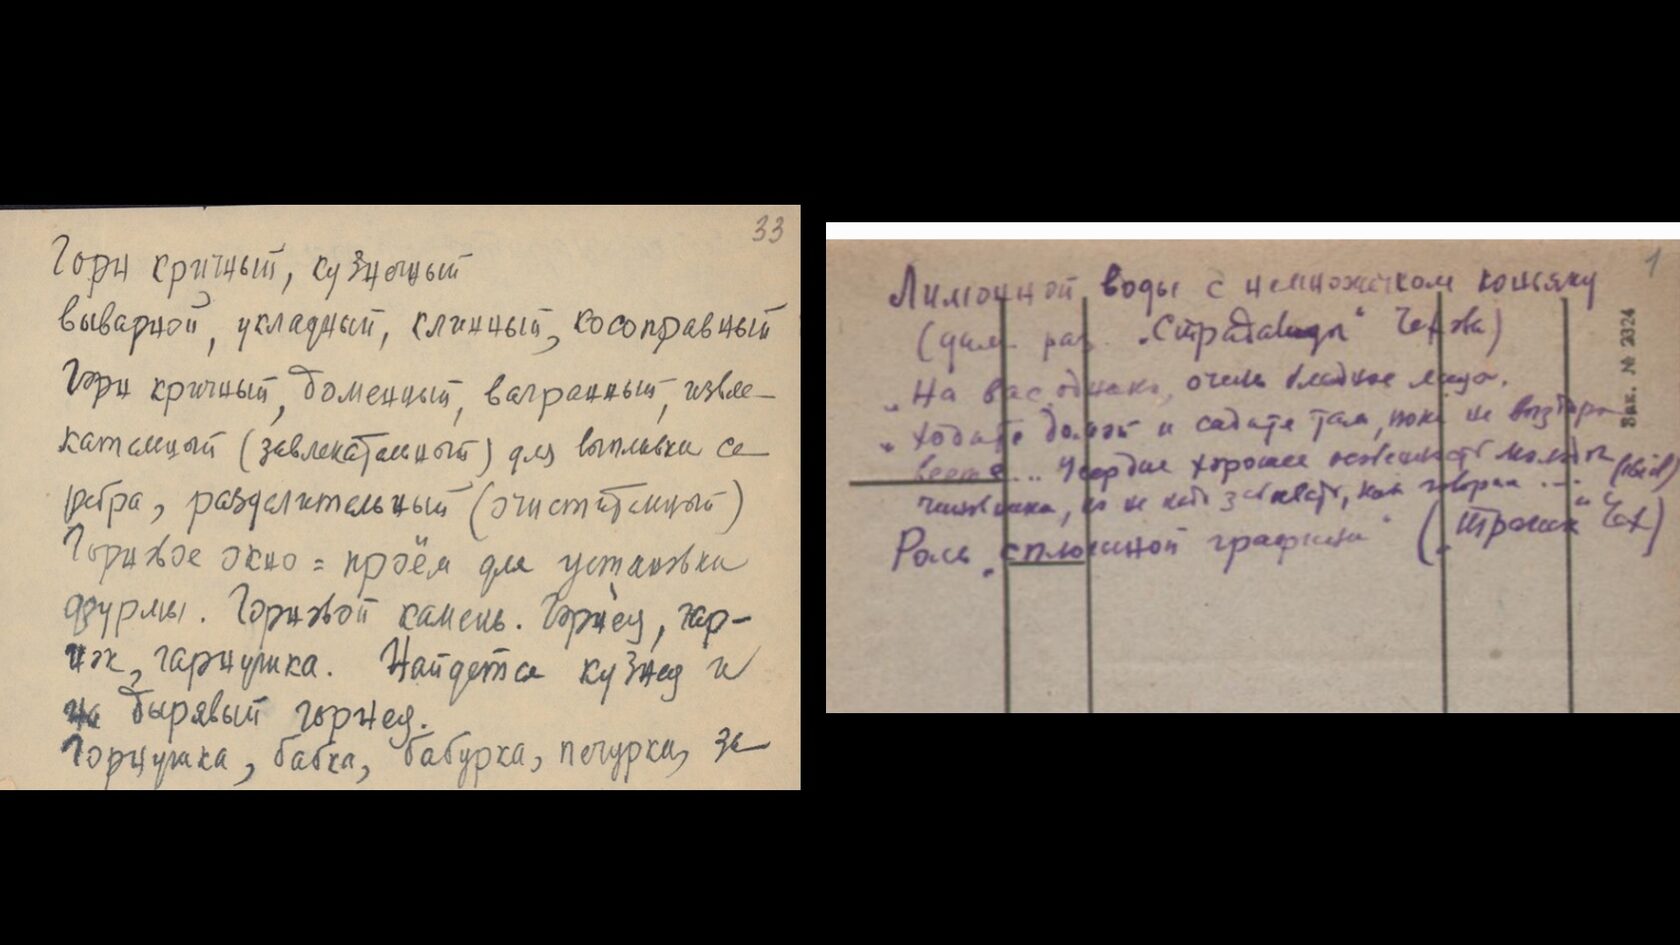 33
Горн кричный, кузнечный
выварной, укладный, клинный, косоправный
Горн кричный, доменный, вагранный, извле-
кательный (завлекательный) для выплавки се-
ребра, разделительный (очистительный)
Горновое окно = проём для установки
фурмы. Горновой камень. Горнец, гор-
нок, гарнушка. Найдется кузнец и
на дырявый горнец.
Горнушка, бабка, бабурка, печурка, за-
1
Лимонной воды с немножечком коньяку
(цит. раз. "Страдальцы" Чехова)
"На вас однако, очень бледное лицо.
" Ходите домой и сидите там, пока не выздоро-
веете... Усердие хорошее
человека, но не надо забывать, как говорил ...
Роль "сплошной графини" ( Чех)
Зак. № 2324